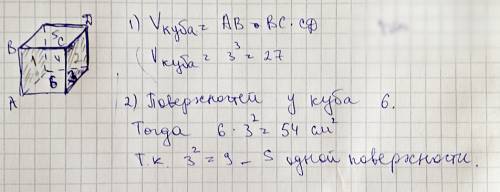 D
S
B C
1 4 2
6 3
A
1) Vкуба = AB • BC • CD
Vкуба = 3³ = 27
2) Поверхностей у куба 6.
Тогда 6 · 3² = 54 см²
Т.к. 3² = 9 – S одной поверхности.